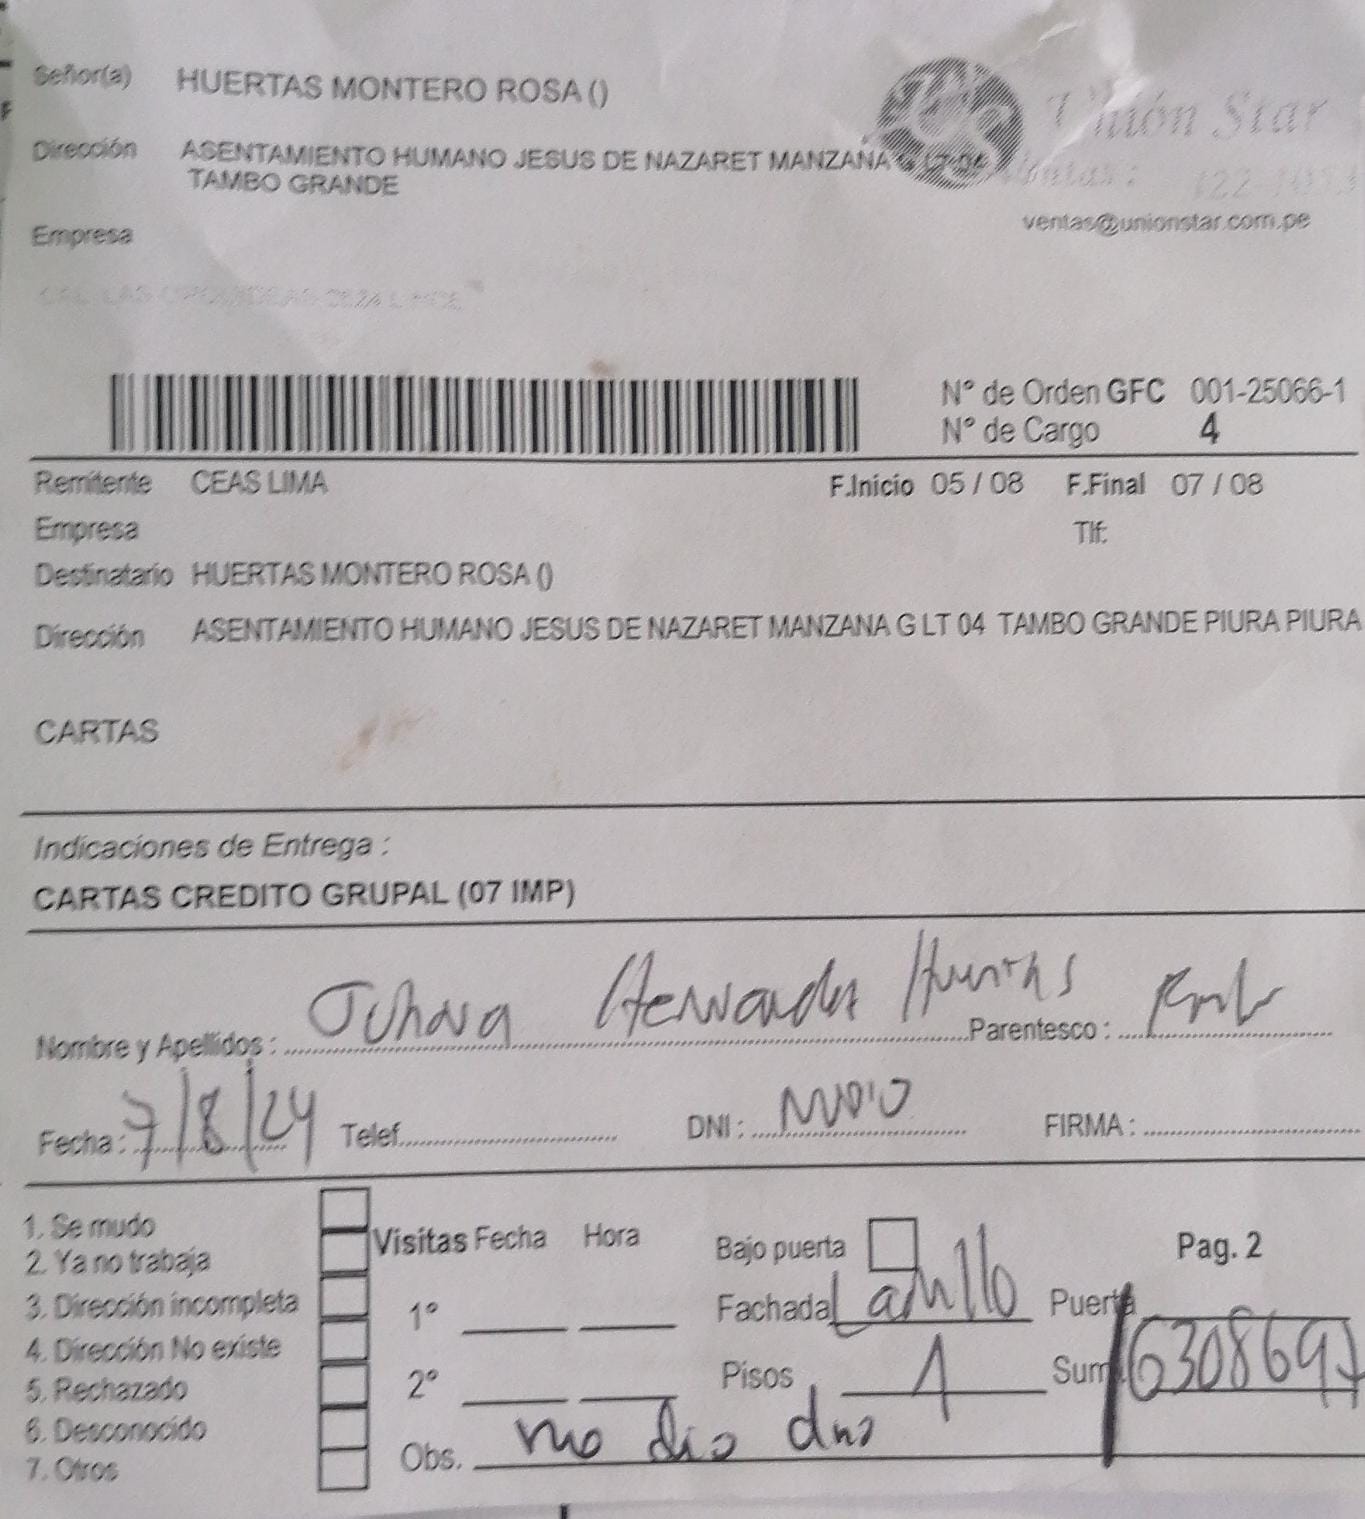 Señor(a) HUERTAS MONTERO ROSA ()
Unión Star
Dirección ASENTAMIENTO HUMANO JESUS DE NAZARET MANZANA G LT 04
TAMBO GRANDE
Ventas: 422-1033
ventas@unionstar.com.pe
Empresa
CAL. LAS ORQUIDEAS 2624 LINCE
N° de Orden GFC 001-25066-1
N° de Cargo 4
Remitente CEAS LIMA F.Inicio 05 / 08 F.Final 07 / 08
Empresa Tlf:
Destinatario HUERTAS MONTERO ROSA ()
Dirección ASENTAMIENTO HUMANO JESUS DE NAZARET MANZANA G LT 04 TAMBO GRANDE PIURA PIURA
CARTAS
Indicaciones de Entrega :
CARTAS CREDITO GRUPAL (07 IMP)
Nombre y Apellidos : Huertas Parentesco :
Fecha : 7/8/24 Telef. DNI : FIRMA :
1. Se mudo
2. Ya no trabaja Visitas Fecha Hora Bajo puerta Pag. 2
3. Dirección incompleta 1° Fachada Ladrillo Puerta
4. Dirección No existe
5. Rechazado 2° Pisos 1 Sum. 6308697
6. Desconocido
7. Otros Obs. no dio dni